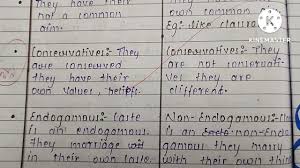 They have their
not a common
aim.
own common
Eg: like classro
KINEMASTER
Conservatives: They
are conserved
they have their
own values, beliefs.
Conservatives: They
are not conservati-
ves they are
different.
Endogamous: Caste
is an endogamous.
They marriage
in their own caste.
Non-Endogamous: Cla
is an non-endog
gamous they marry
with their own this